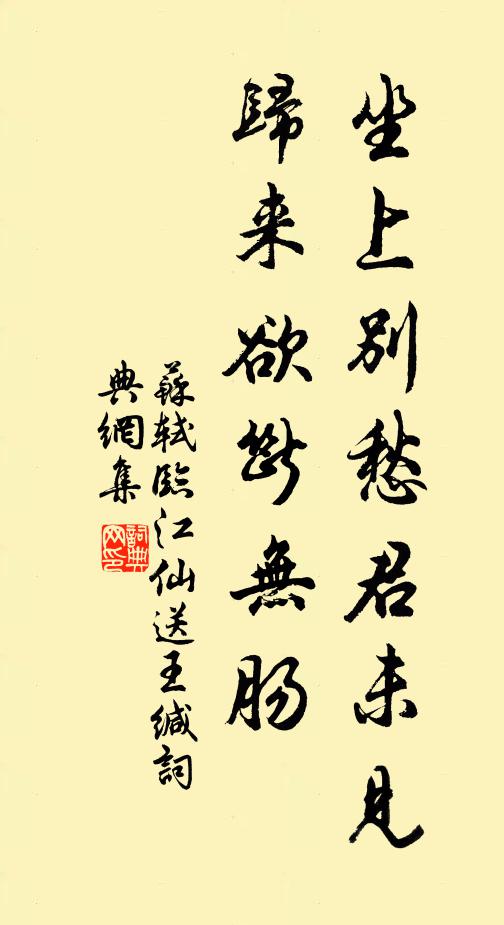 坐上別愁君未見
歸来欲斷無腸
蘇軾臨江仙送王緘詞
典網集
詞典
网印